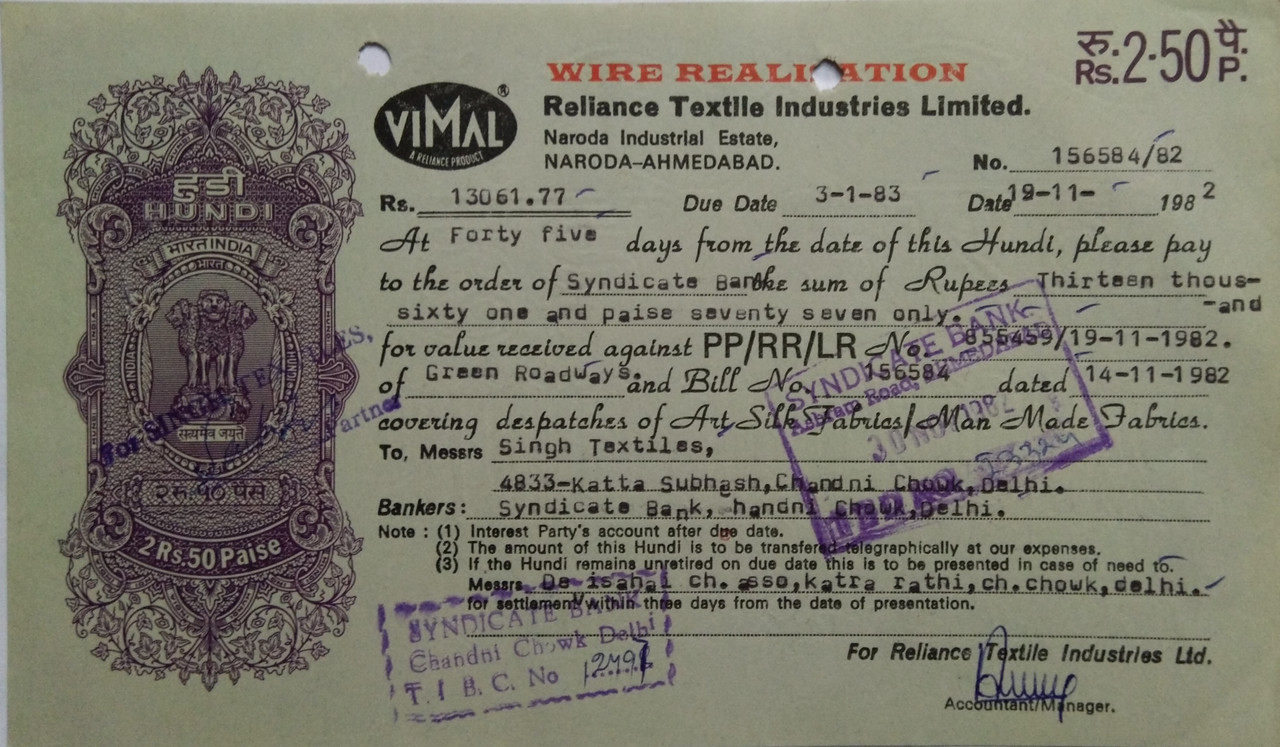 रु. 2·50 पै.
Rs. P.
WIRE REALISATION
VIMAL ®
A RELIANCE PRODUCT
Reliance Textile Industries Limited.
Naroda Industrial Estate,
NARODA-AHMEDABAD.
No. 156584/82
Rs. 13061.77 Due Date 3-1-83 Date 19-11- 1982
At Forty five days from the date of this Hundi, please pay
to the order of Syndicate Bank the sum of Rupees Thirteen thous-
-and
sixty one and paise seventy seven only.
for value received against PP/RR/LR No. 855459/19-11-1982.
of Green Roadways. and Bill No. 156584 dated 14-11-1982
covering despatches of Art Silk Fabrics/Man Made Fabrics.
To, Messrs Singh Textiles,
4833-Katta Subhash,Chandni Chowk,Delhi.
Bankers: Syndicate Bank, handni Chowk,Delhi.
Note : (1) Interest Party's account after due date.
(2) The amount of this Hundi is to be transfered telegraphically at our expenses.
(3) If the Hundi remains unretired on due date this is to be presented in case of need to.
Messrs De isahai ch. asso,katra rathi,ch.chowk,delhi.
for settlement within three days from the date of presentation.
For Reliance Textile Industries Ltd.
Accountant/Manager.
हुंडी
HUNDI
भारत INDIA
सत्यमेव जयते
२ रु. ५० पैसे
2 Rs.50 Paise
For SINGH TEXTILES,
Partner
SYNDICATE BANK
Ashram Road, AHMEDABAD
30 NOV 1982
SYNDICATE BANK
Chandni Chowk Delhi
T. I B. C. No